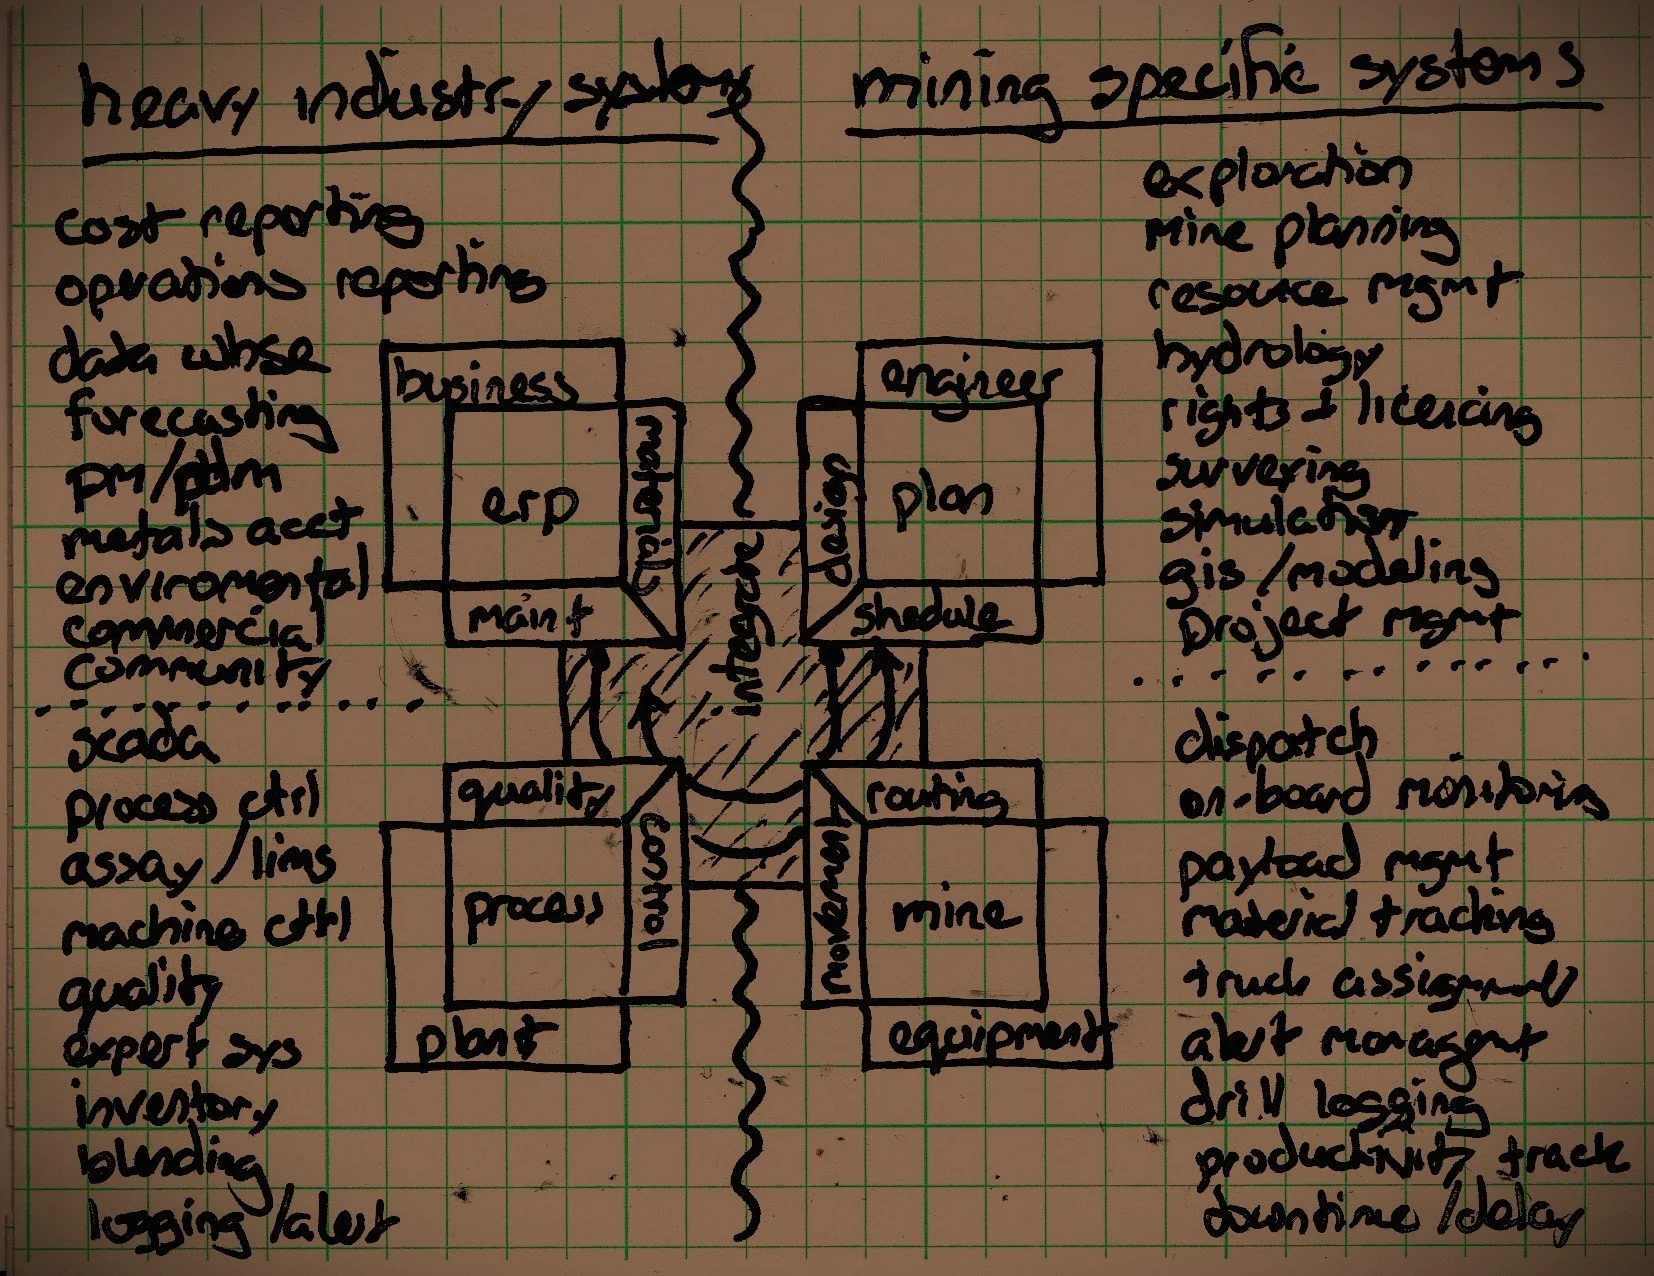 heavy industry systems
mining specific systems
cost reporting
operations reporting
data whse
forecasting
pm/pdm
metals acct
enviromental
commercial
community
scada
process ctrl
assay/lims
machine ctrl
quality
expert sys
inventory
blending
logging/alert
business
erp
materials
maint
engineer
design
plan
shedule
integrate
quality
control
process
plant
routing
movement
mine
equipment
exploration
mine planning
resource mgmt
hydrology
rights + licencing
surveying
simulation
gis/modeling
project mgmt
dispatch
on-board monitoring
payload mgmt
material tracking
truck assignment
alert managent
drill logging
productivity track
downtime/delay